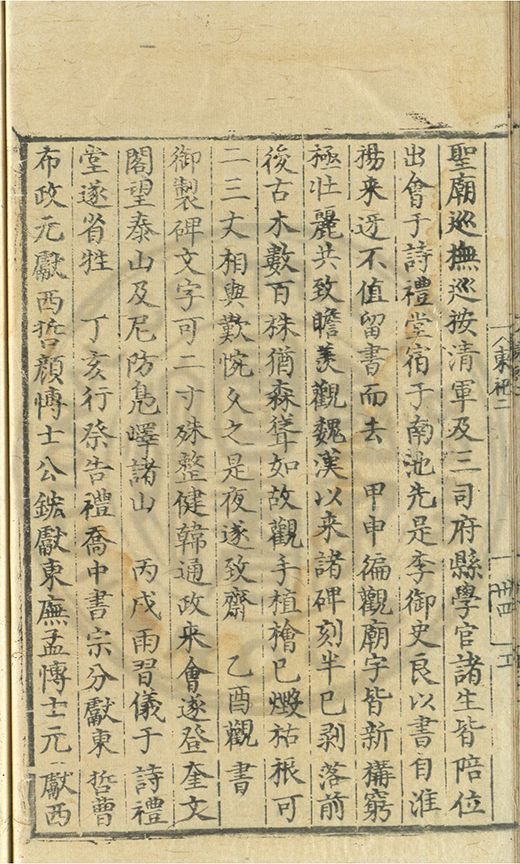 聖廟巡撫巡按清軍及三司府縣學官諸生皆陪位
出會于詩禮堂宿于南池先是李御史良以書自淮
揚来迓不值留書而去　甲申徧觀廟宇皆新搆窮
極壮麗共致瞻羙觀魏漢以来諸碑刻半已剥落前
後古木數百株猶森聳如故觀手植檜已燬枯根可
二三丈相與歎惋久之是夜遂致齋　乙酉觀　書
御製碑文字可二寸殊整健韓通政来會遂登奎文
閣望泰山及尼防鳬嶧諸山　丙戌雨習儀于　詩禮
堂遂省牲　丁亥行祭告禮喬中書宗分獻東　哲曹
布政元獻西哲顔愽士公鋐獻東廡孟愽士元　獻西
東祀二
卌四